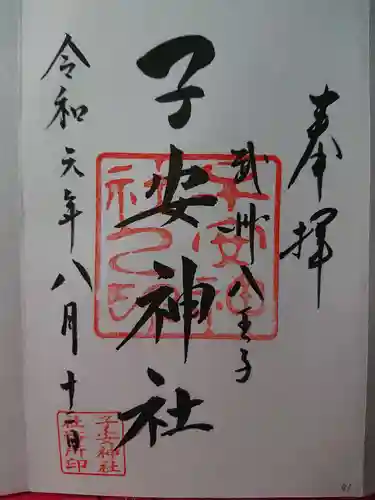 奉拝
武州八王子
子安神社
令和元年八月十二日
子安神社之印
子安神社社務所印